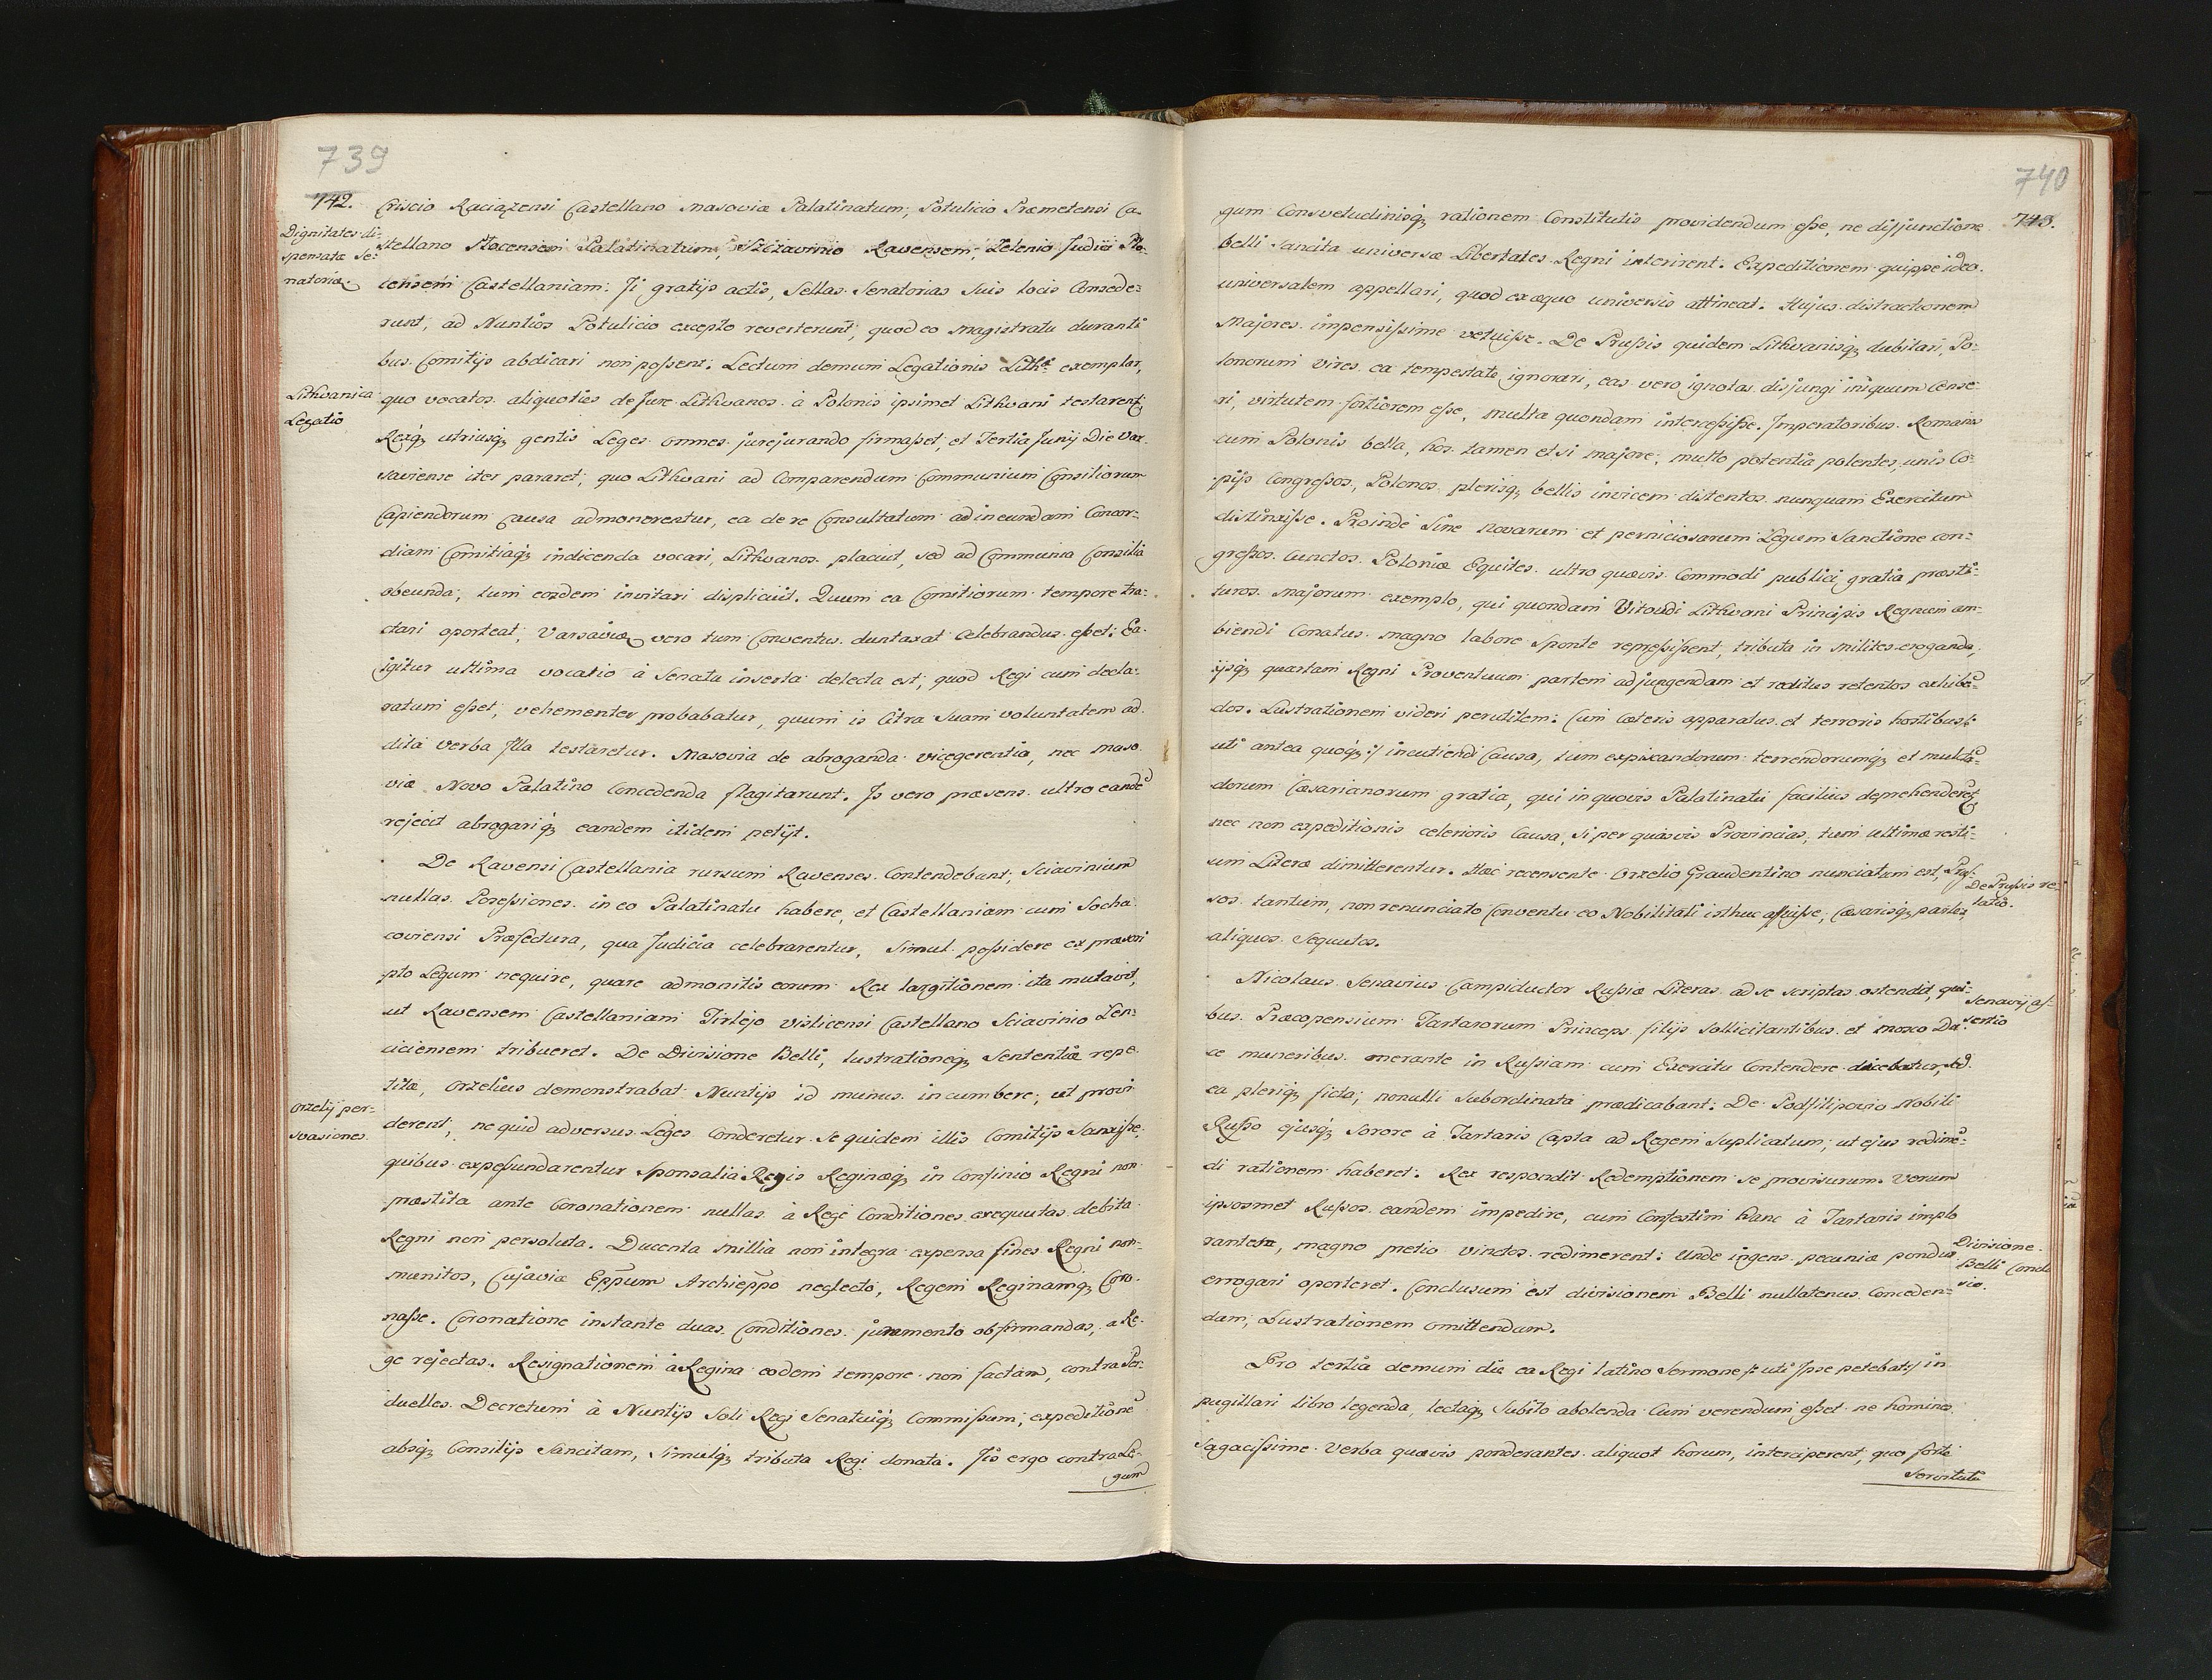 739
742.
Criscio Raciązensi Castellano Masoviæ Palatinatum, Potulicio Præmetensi Ca-
Dignitates di-
spensatæ Se-
natoriæ.
stellano Plocensem Palatinatum, Sczavinio Ravensem, Zelenio Judici Plo-
censem Castellaniam. Ji gratijs actis, Sellas Senatorias suis locis Consede-
runt, ad Nuntios Potulicio excepto reverterunt, quod eo Magistratu duranti
bus Comitijs abdicari non possent. Lectum demum Legationis Lith: exemplar,
Lithvanica
Legatio
quo vocatos aliquoties de Jure Lithvanos à Polonis ipsimet Lithvani testarent
Rexq; utriusq; gentis Leges omnes jurejurando firmasset, et Tertia Junij Die Var-
saviense iter pararet, quo Lithvani ad Comparendum Communium Consiliorum
Capiendorum causa admonerentur, ea de re Consultatum ad ineundam Concor-
diam Comitiaq; indicenda vocari, Lithvanos placuit, sed ad Communia Consilia
obeunda, tum eosdem invitari displicuit. Quum ea Comitiorum tempore tra-
ctari oporteat, Varsaviæ vero tum Conventus duntaxat celebrandus esset: Ea
igitur ultima vocatio à Senatu inserta delecta est, quod Regi cum decla-
ratum esset, vehementer probabatur, quum is Citra Suam voluntatem ad
dita verba Illa testaretur. Masovia de abroganda vicegerentia, nec Maso
viæ Novo Palatino Concedenda flagitarunt. Is vero præsens ultro eandē
rejecit abrogariq; eandem itidem petijt.
De Ravensi Castellania rursum Ravenses Contendebant, Sciavinium
nullas Possessiones in eo Palatinatu habere, et Castellaniam cum Socha
coviensi Præfectura, qua Judicia celebrarentur, Simul possidere ex præscri
pto Legum nequire, quare admonitis eorum Rex largitionem ita mutavit,
ut Ravensem Castellaniam Tirlejo vislicensi Castellano Sciavinio Len-
ciciensem tribueret. De Divisione Belli, lustrationeq; Sententiæ repe
titæ, Orzelius demonstrabat Nuntijs id munus incumbere, ut provi
Orzelij per-
svasiones.
derent, ne quid adversus Leges Conderetur. Se quidem illis Comitijs Sanxisse,
quibus expessundarentur Sponsalia Regis Reginæq; in Confinio Regni non
præstita ante Coronationem nullas à Rege Conditiones exequutas debita
Regni non persoluta. Ducenta millia non integra expensa fines Regni non-
munitos, Cujaviæ Eppum Archieppo neglecto, Regem Reginamq; Coro-
nasse. Coronatione instante duas Conditiones juramento obfirmandas, a Re-
ge rejectas. Resignationem à Regina eodem tempore non factam, contra Per-
duelles Decretum à Nuntijs Soli Regi Senatuiq; Commissum, expeditionē
absq; Consilijs Sancitam, Simulq; tributa Regi donata. Jis ergo contra Le-
gum
740
743.
gum Consvetudinisq; rationem Constitutis providendum esse, ne disjunctione
belli Sancita universæ Libertates Regni interirent. Expeditionem quippe ideo
universalem appellari, quod ex æquo universis attineat. Hujus distractionem
Majores impensissime vetuisse. De Prussis quidem Lithvanisq; dubitari, Po-
lonorum vires ea tempestate ignorari, eas vero ignotas disjungi iniquum Cense-
ri, virtutem fortiorem esse, multa quondam intercessisse Imperatoribus Romanis
cum Polonis bella, hos tamen etsi majore, multo potentia polentes, unis Co-
pijs Congressos, Polonos plerisq; bellis invicem distentos nunquam Exercitum
distinxisse. Proinde Sine novarum et perniciosarum Legum Sanctione con-
gressos. Cunctos Poloniæ Equites ultro quævis Commodi publici gratia præsti-
turos Majorum exemplo, qui quondam Vitoudi Lithvani Principis Regnum am-
biendi Conatus magno labore Sponte repressissent, tributa in Milites eroganda,
ijsq; quartam Regni Proventuum partem adjungendam et reditus retentos exhibē-
dos. Lustrationem videri perutilem: Cum cæteris apparatus et terroris hostibus /:
uti antea quoq; :/ incutiendi Causa, tum expiscandorum terrendorumq; et multā-
dorum Cæsarianorum gratia, qui in quovis Palatinatu facilius deprehenderet,
nec non expeditionis celerioris Causa, Si per quasvis Provincias, tum ultimæ resti-
um Literæ dimitterentur. Hæc recensente Orzelio Graudentino nunciatum est, Prus-
De Prussis re-
latio.
sos tantum, non renunciato Conventu eo Nobilitati isthuc affuisse, Cæsarisq; partes
aliquos Sequutos.
Nicolaus Senavius Campiductor Russiæ Literas ad se scriptas ostendit, qui-
Senavij as-
sertio
bus Præcopensium Tartarorum Princeps filijs sollicitantibus et Mosco Du-
ce muneribus merante in Russiam cum Exercitu Contendere dicebatur, sed
ea pleriq; ficta, nonulli Subordinata prædicabant. De Podfilipovio Nobili
Russo ejusq; Sorore à Tartaris Capta ad Regem Suplicatum, ut ejus redimē-
di rationem haberet. Rex respondit Redemptionem se provisurum. Verum
ipsosmet Russos eandem impedire, cum Confestim hanc à Tartaris implo
rantes, magno pretio vinctos redimerent: Unde ingens pecuniæ pondus
Divisione
Belli Conclu
sio.
errogari oporteret. Conclusum est divisionem Belli nullatenus Conceden-
dam, Lustrationem omittendam.
Pro tertia demum die ea Regi latino Sermone /: uti Ipse petebat :/ in
pugillari libro legenda, lectaq; Subito abolenda Cum verendum esset ne homines
Sagacissime verba quævis ponderantes aliquot horum, interciperent, quo forte
Servitute